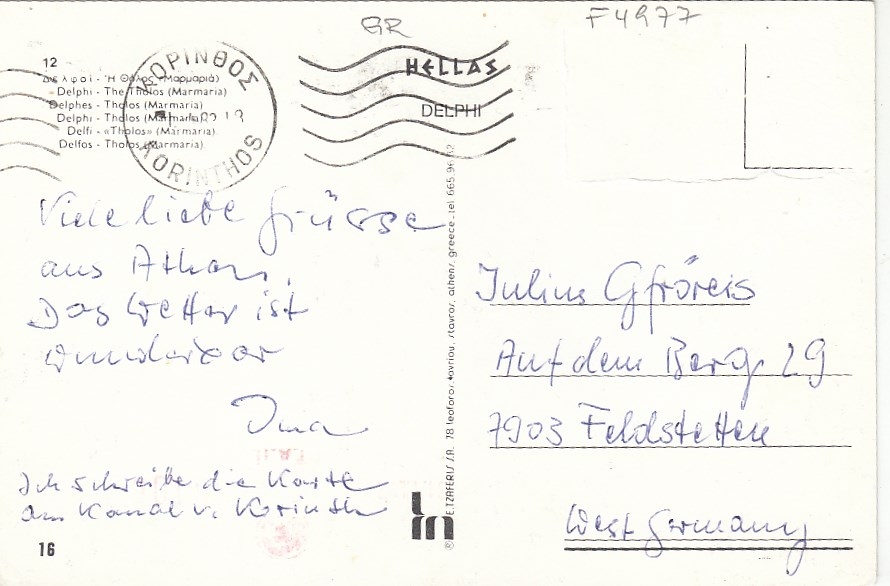 GR
F4977
12
Δελφοί - Ἡ Θόλος (Μαρμαριά)
Delphi - The Tholos (Marmaria)
Delphes - Tholos (Marmaria)
Delphi - Tholos (Marmaria)
Delfi - «Tholos» (Marmaria)
Delfos - Tholos (Marmaria)
ΚΟΡΙΝΘΟΣ
KORINTHOS
HELLAS
DELPHI
Viele liebe Grüsse
aus Athen.
Das Wetter ist
wunderbar
Oma
Ich schreibe die Karte
am Kanal v. Korinth
16
E. TZAFERIS S.A. 78 leoforos tavrou, stavros, athens, greece. tel 665.96.62
Julius Gfröreis
Auf dem Berg 29
7903 Feldstetten
West Germany